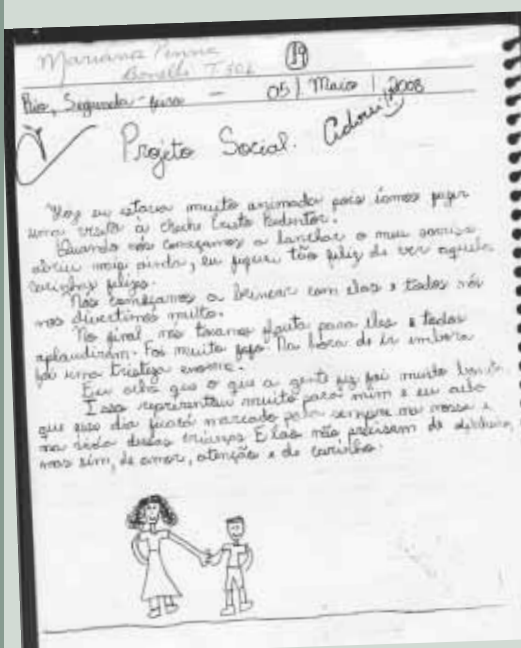 Mariana Penna
19
Bonelli T 302
Rio, Segunda-feira - 05 | Maio | 2008
Projeto Social. Adorei!
Hoje eu estava muito animada pois íamos fazer
uma visita a creche Cristo Redentor.
Quando nós começamos a lanchar o meu sorriso
abriu mais ainda, eu fiquei tão feliz de ver aquelas
carinhas felizes.
Nós começamos a brincar com elas e todos nós
nos divertimos muito.
No final, nós tocamos flauta para eles e todos
aplaudiram. Foi muito fofo. Na hora de ir embora
foi uma tristeza enorme.
Eu acho que o que a gente fez foi muito bonito.
Isso representou muito para mim e eu acho
que esse dia ficará marcado para sempre na nossa e
na vida dessas crianças. Elas não precisam de dinheiro,
mas sim, de amor, atenção e de carinho.